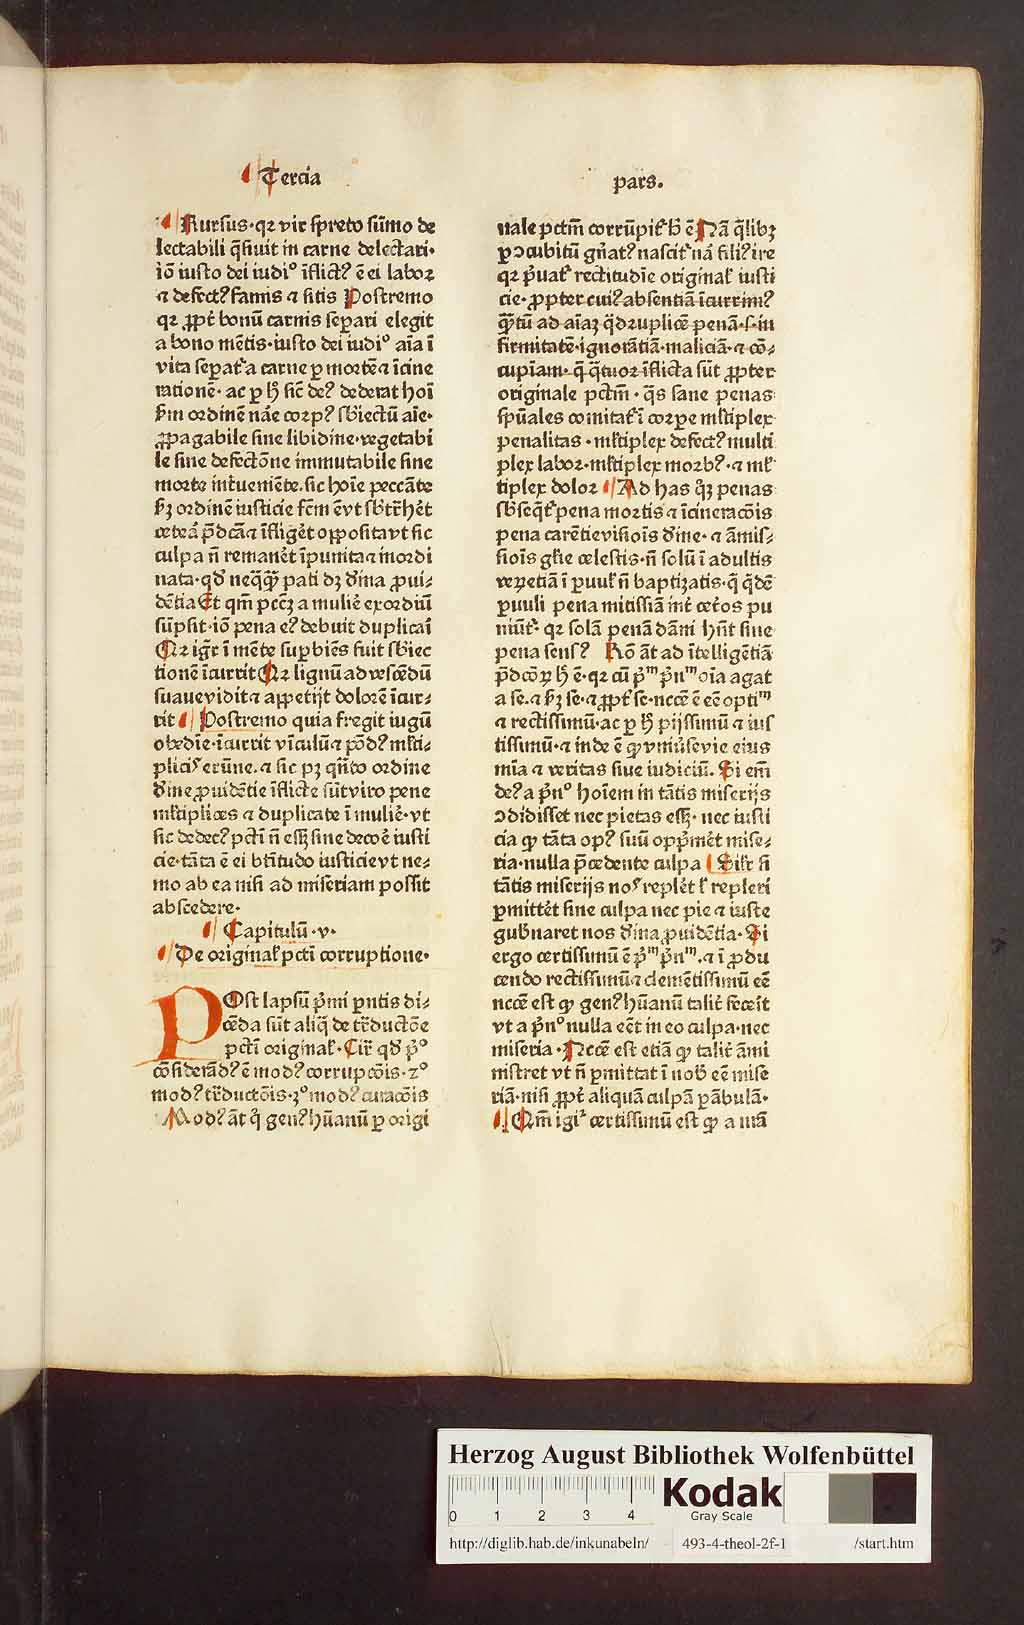 Tercia
pars.
Rursus·qꝛ vir spreto sūmo de
lectabili q̄siuit in carne delectari·
iō iusto dei iudiᵒ īflictꝰ ē ei laboꝛ
⁊ defectꝰ famis ⁊ sitis Postremo
qꝛ ꝓpt̄ bonū carnis seꝑari elegit
a bono mētis·iusto dei iudiᵒ aīa ī
vita seꝑat᷑ a carne ꝑ mortē⁊ īcine
rationē· ac ꝑ hͦ sic̄ deꝰ dederat hoī
ẜm ordinē nāe corpꝰ sb̄iectū aīe·
ꝓpagabile sine libidine·vegetabi
le sine defectōne immutabile sine
morte int̄ueniēte.sic hoīe peccāte
ẜꝫ ordinē iusticie
culpa n̄ remanēt īpunita⁊ inordi
nata·qd̄ neq̄q̄ꝫ pati dꝫ dīna ꝓui⸗
dētia Et qm̄ pctꝫ a mulīe exordiū
sūpsit·iō pena eiꝰ debuit duplicaī
Qꝛ igit̄ ī mēte suꝑbiēs fuit sb̄iec
tionē īcurrit Qꝛ lignū ad vescēdū
suaue vidit⁊ appetijt dolorē īcur⸗
rit Postremo quia fregit iugū
obedīe·īcurrit vīculū⁊ pōdꝰ ml̄ti⸗
plicis erūne.⁊ sic pꝫ qn̄to ordine
dīne ꝓuidētie īflicte sūt viro pene
ml̄tiplices ⁊ duplicate ī muliē·vt
sic dedecꝰ pcti n̄ eēt sine decoē iusti
cie·tāta ē ei btītudo iusticie vt ne⸗
mo ab ea nisi ad miseriam possit
abscedere·
Capitulū·v·
De originał pcti corruptione·
POst lapsū pͥmi pn̄tis di⸗
cēda sūt aliq̄ de tͣductōe
pcti originał·Cir̄ qd̄ pͥᵒ
cōsiderādꝰ ē modꝰ corrupcōis·2ᵒ
modꝰ tͣductōis·3ᵒ modꝰ curacōis
Modꝰ āt qͦ genꝰ hūanū ꝑ origi
nale pctm̄ corrūpit᷑ hͦ ē Nā q̄libꝫ
ꝑ ↄcubitū gn̄atꝰ nascit᷑ nā filiꝰ ire
qꝛ pͥuat᷑ rectitudīe originał iusti
cie·ꝓpter cuiꝰ absentiā īcurrimꝰ
q̄ꝫtū ad aīaꝫ q̄druplicē penā·s·in
firmitatē·ignorātiā·maliciā·⁊ cō⸗
cupīam·q̄ q̄tuor īflicta sūt ꝓpter
originale pctm̄·q̄s sane penas
spūales comitat᷑ ī corꝑe ml̄tiplex
penalitas·ml̄tiplex defectꝰ multi
plex labor·ml̄tiplex morbꝰ·⁊ ml̄
tiplex dolor Ad has qͦꝫ penas
sb̄seq̄t᷑ pena mortis ⁊ īcineracōis
pena carētie visiōis dīne·⁊ āmis⸗
siōis gl̄ie celestis·n̄ solū ī adultis
veꝝ etiā ī paruuł n̄ baptizatis·q̄ q̄dē
paruuli pena mitissīa int̄ cet̄os pu
niūt᷑· qꝛ solā penā dāni hn̄t sine
pena sensꝰ Rō āt ad ītelligētiā
pͥdcōꝝ hͦ ē·qꝛ cū pͥᵐ pͥn̄ᵐ oīa agat
a se.⁊ ẜꝫ se·⁊ ꝓpt̄ se·nccē ē eē optiᵐ
⁊ rectissimū·ac ꝑ hͦ pijssimū ⁊ ius
tissimū·⁊ inde ē ꝙ vniūse vie eius
mīa ⁊ veritas siue iudiciū. Si em̄
deꝰ a pͥn̄ᵒ hoīem in tātis miserijs
ↄdidisset nec pietas eēt· nec iusti
cia ꝙ tāta opꝰ suū oppͥmēt mise⸗
ria·nulla pͥcedente culpa Sił si
tātis miserijs nos replēt ł repleri
ꝑmittēt sine culpa nec pie ⁊ iuste
gub̄naret nos dīna ꝓuidētia·Si
ergo certissimū ē pͥᵐ pͥn̄ᵐ.⁊ ī ꝓdu
cendo rectissimū⁊ clemētissimū eē
nccē est ꝙ genꝰ hūanū talit̄ feceīt
vt a pͥn̄ᵒ nulla eēt in eo culpa·nec
miseria·Nccē est etiā ꝙ talit̄ āmi
nistret vt n̄ ꝑmittat ī nob̄ eē mise
riā·nisi ꝓpt̄ aliquā culpā pͥābulā·
Qm̄ igiᵗ certissimū est ꝙ a mā
Herzog August Bibliothek Wolfenbüttel
0 1 2 3 4
Kodak
Gray Scale
http://diglib.hab.de/inkunabeln/ 493-4-theol-2f-1 /start.htm